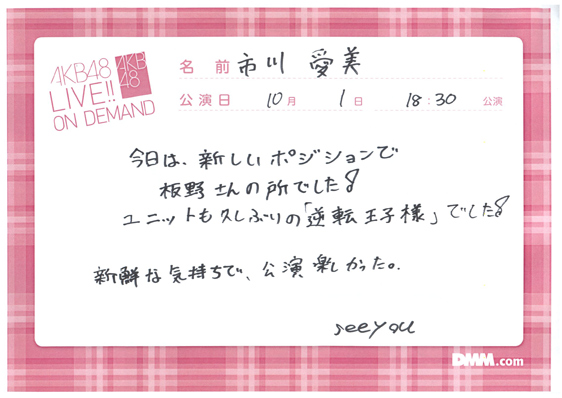 AKB48
LIVE!!
ON DEMAND
AKB
48
名 前 市川 愛美
公演日 10月 1日 18:30 公演
今日は、新しいポジションで
板野さんの所でした!
ユニットも久しぶりの「逆転王子様」でした!
新鮮な気持ちで、公演楽しかった。
seeyou
DMM.com